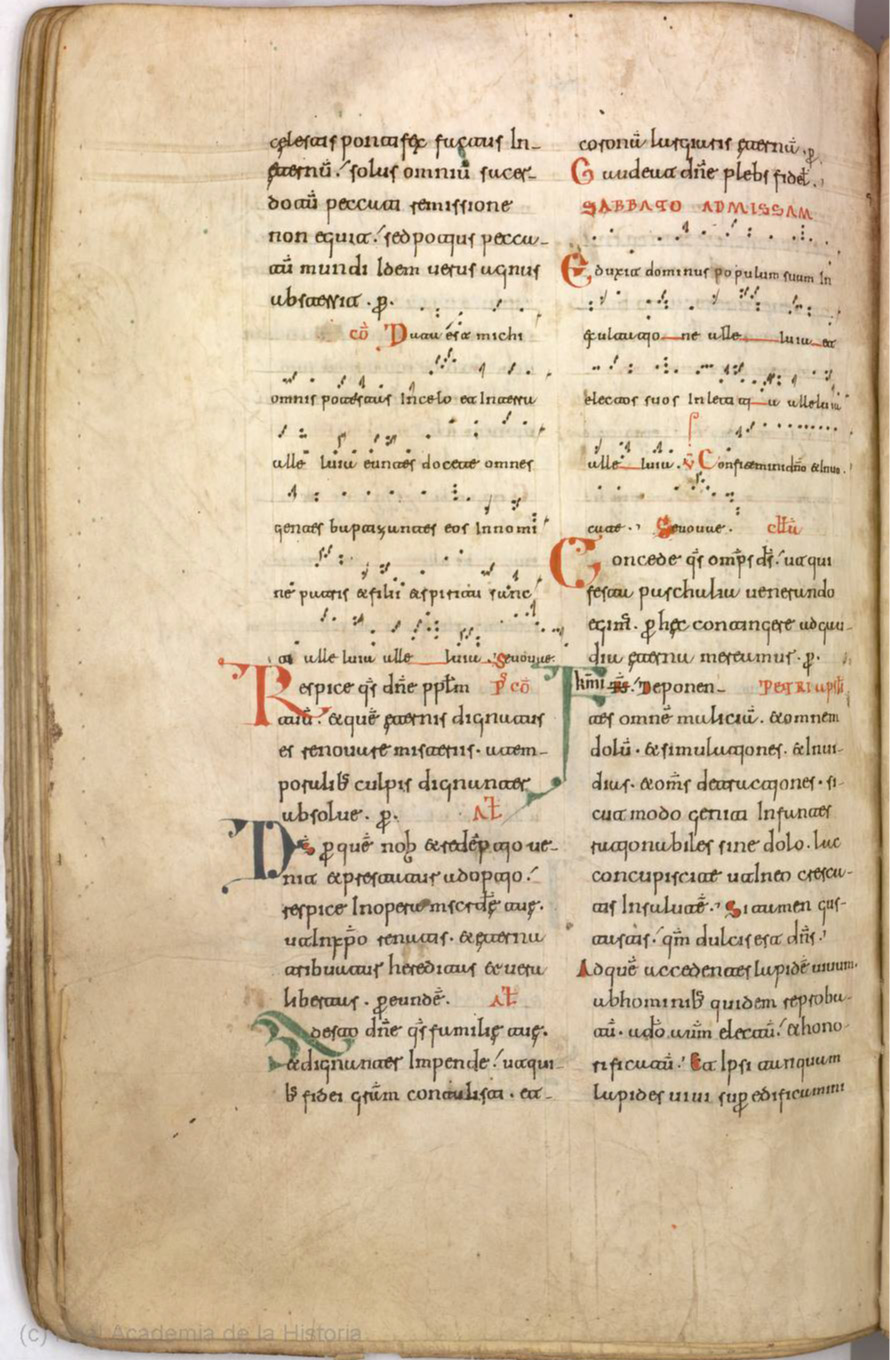 cęlestis pontifęx factus In-
ęternū. solus omniū sacer-
dotū peccati remissione
non eguit. sed potius pecca-
tū mundi Idem uerus agnus
abstersit. p̄.
cō Data est michi
omnis potestas Incelo et Interra
alle luia euntes docete omnes
gentes baptizantes eos Innomi
ne patris & filii & spiritu sanc
ti alle luia alle luia. Seuouae.
Respice q̄s dn̄e pplm̄ P̄ cō
tuū. & quē ęternis dignatus
es renouare misteriis. a tem-
poralib; culpis dignanter
absolue. p̄. Al̄t
Ds̄ p quē nob & redēptio ue-
nit & prestatur adoptio.
respice Inopera miscd̄ę tuę.
ut Inxp̄o renatis. & ęterna
tribuatur hereditas & uera
libertas. p eundē. Al̄t
Adesto dn̄e q̄s familię tuę.
& dignanter Impende. ut qui
b; fidei grām contulisti. et-
coronā largiaris ęternā. p̄
Gaudeat dn̄e plebs fidel̄.
SABBATO ADMISSAM
Eduxit dominus populum suum In
exultatione alle luia et
electos suos Inletitia alleluia
alle luia. V̄ Confitemini dn̄o & Inuo.
cate. Seuouae. cl̄lā
Concede q̄s omp̄s ds̄. ut qui
festa paschalia uenerando
egim̄. p hęc contingere adgau-
dia ęterna mereamur. p̄.
k̄mi Deponen- PETRI apl̄i
tes omnē maliciā. & omnem
dolū. & simulationes. & Inui-
dias. & om̄s detractiones. si-
cut modo geniti Infantes
rationabiles sine dolo. lac
concupiscite ut Ineo cresca-
tis Insalutē. Si tamen gus-
tastis. qm̄ dulcis est dn̄s.
Adquē accedentes lapidē uiuum.
ab hominib; quidem reproba-
tū. a dō aūm electū. & hono-
rificatū. Et Ipsi tanquam
lapides uiui sup edificamini
(c) Real Academia de la Historia